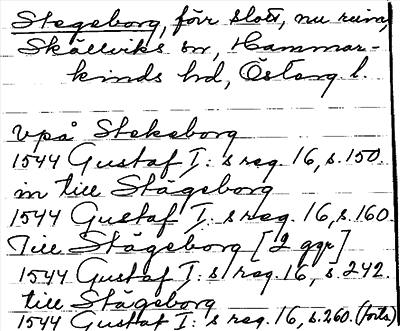 Stegeborg, förr slott, nu ruin,
Skällviks sn, Hammar-
kinds hd, Östang l.
vpå Stekeborg
1544 Gustaf I:s reg. 16, s. 150.
in till Stägeborg
1544 Gustaf I:s reg. 16, s. 160.
Till Stägeborg [2 ggr]
1544 Gustaf I:s reg. 16, s. 242.
till Stägeborg
1544 Gustaf I:s reg. 16, s. 260. (forts)